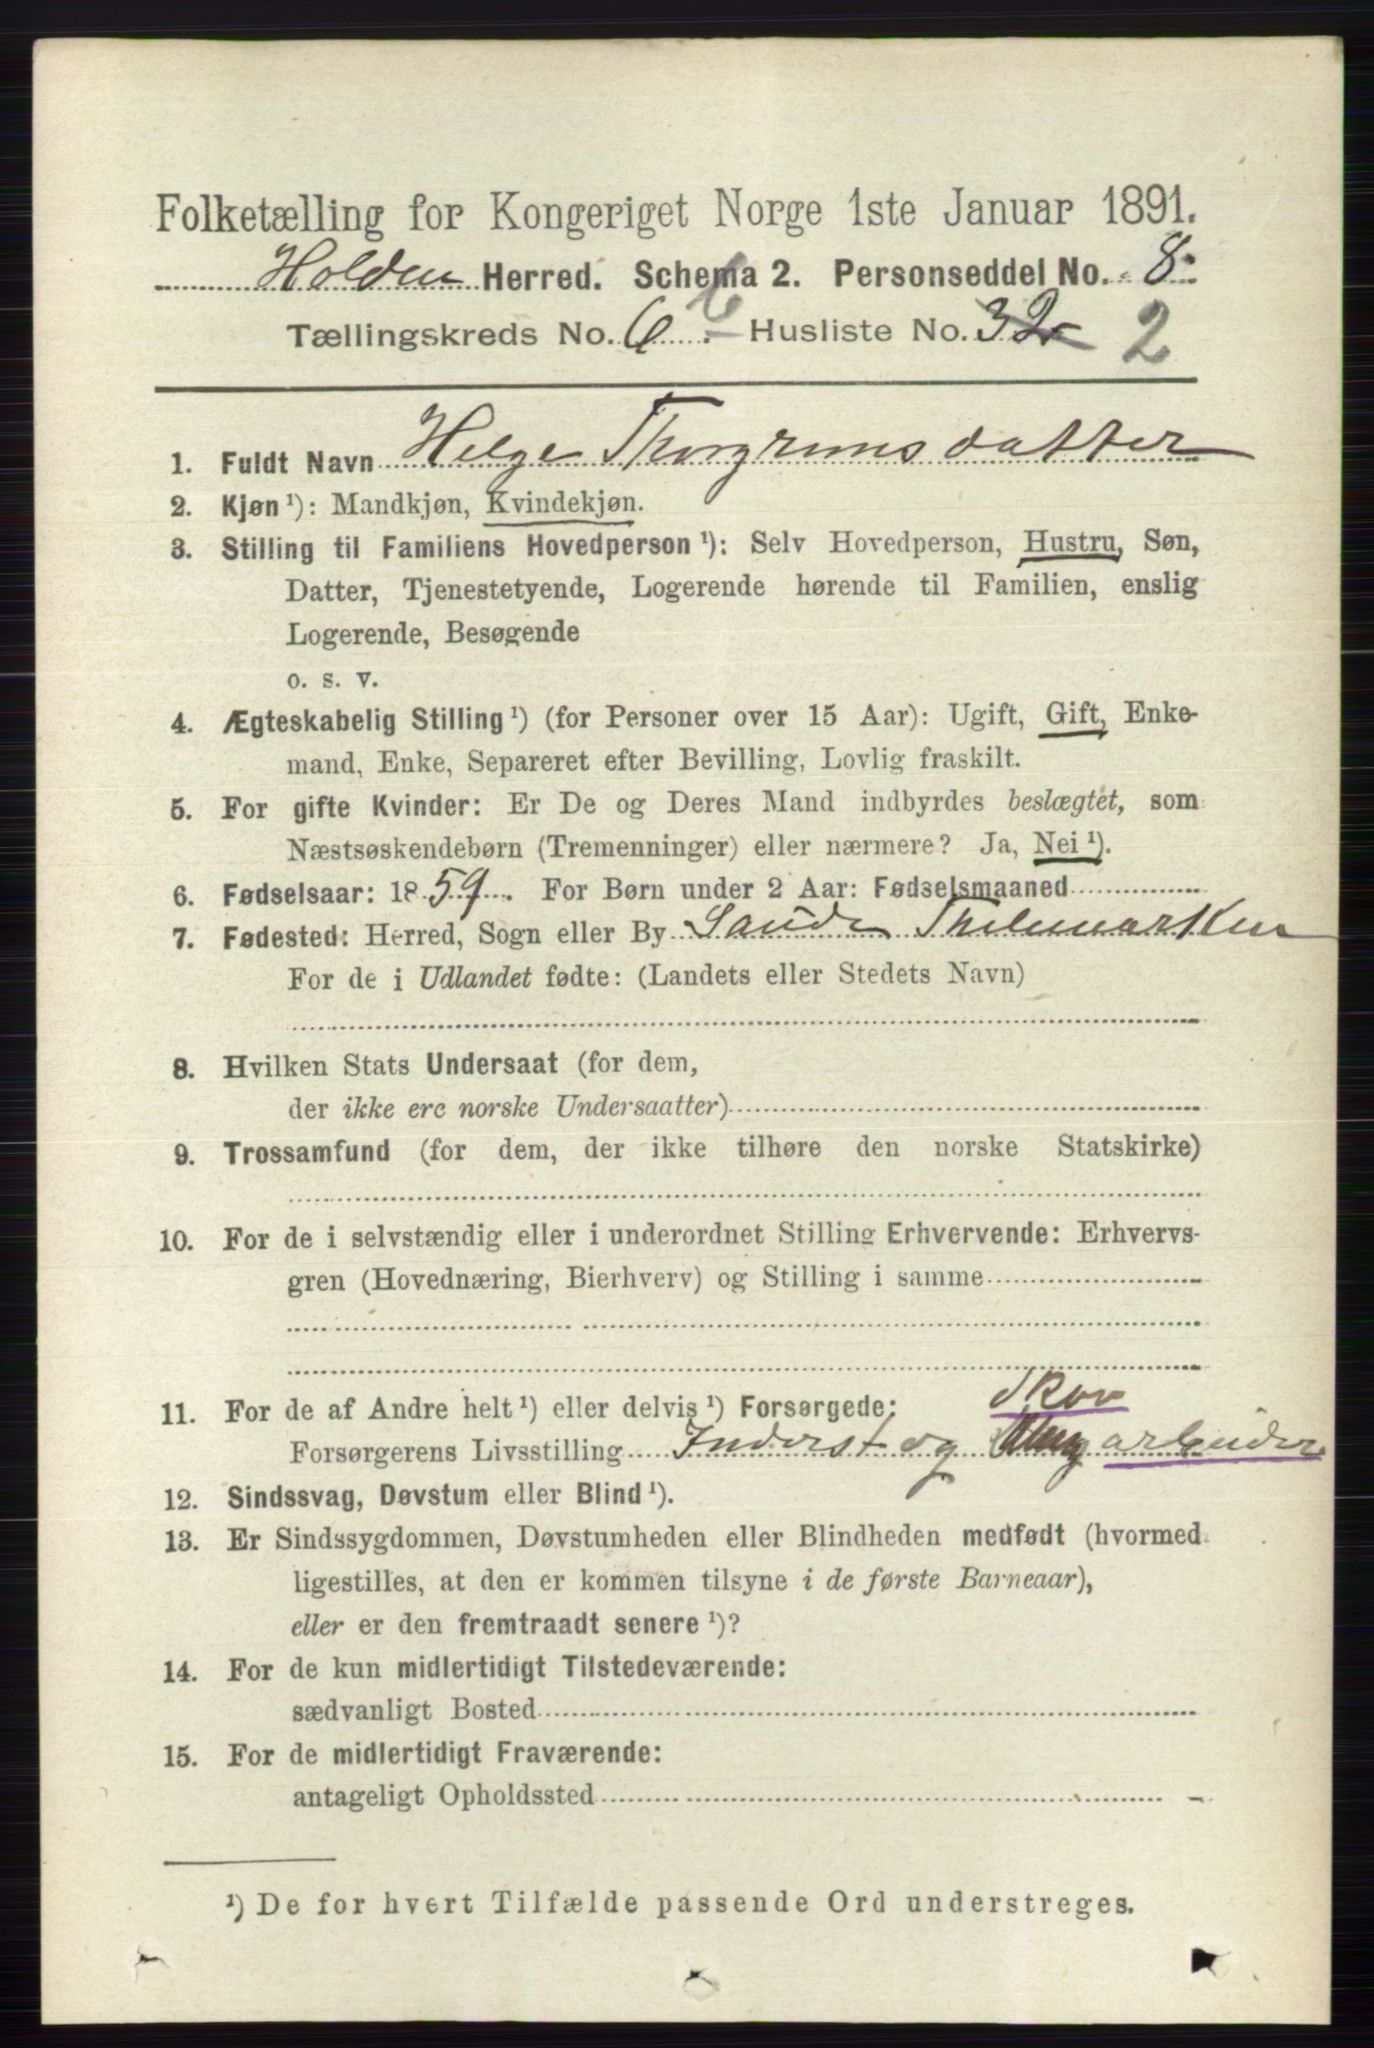 Folketælling for Kongeriget Norge 1ste Januar 1891.
Holden Herred. Schema 2. Personseddel No. 8.
Tællingskreds No. 6 6. Husliste No. 32 2
1. Fuldt Navn Helge Thorgrimsdatter
2. Kjøn ¹): Mandkjøn, Kvindekjøn.
3. Stilling til Familiens Hovedperson ¹): Selv Hovedperson, Hustru, Søn,
Datter, Tjenestetyende, Logerende hørende til Familien, enslig
Logerende, Besøgende
o. s. v.
4. Ægteskabelig Stilling ¹) (for Personer over 15 Aar): Ugift, Gift, Enke-
mand, Enke, Separeret efter Bevilling, Lovlig fraskilt.
5. For gifte Kvinder: Er De og Deres Mand indbyrdes beslægtet, som
Næstsøskendebørn (Tremenninger) eller nærmere? Ja, Nei ¹).
6. Fødselsaar: 1859. For Børn under 2 Aar: Fødselsmaaned
7. Fødested: Herred, Sogn eller By Saude Thelemarken
For de i Udlandet fødte: (Landets eller Stedets Navn)
8. Hvilken Stats Undersaat (for dem,
der ikke ere norske Undersaatter)
9. Trossamfund (for dem, der ikke tilhøre den norske Statskirke)
10. For de i selvstændig eller i underordnet Stilling Erhvervende: Erhvervs-
gren (Hovednæring, Bierhverv) og Stilling i samme
11. For de af Andre helt ¹) eller delvis ¹) Forsørgede: Skov
Forsørgerens Livsstilling Inderst og arbeider
12. Sindssvag, Døvstum eller Blind ¹).
13. Er Sindssygdommen, Døvstumheden eller Blindheden medfødt (hvormed
ligestilles, at den er kommen tilsyne i de første Barneaar),
eller er den fremtraadt senere ¹)?
14. For de kun midlertidigt Tilstedeværende:
sædvanligt Bosted
15. For de midlertidigt Fraværende:
antageligt Opholdssted
¹) De for hvert Tilfælde passende Ord understreges.